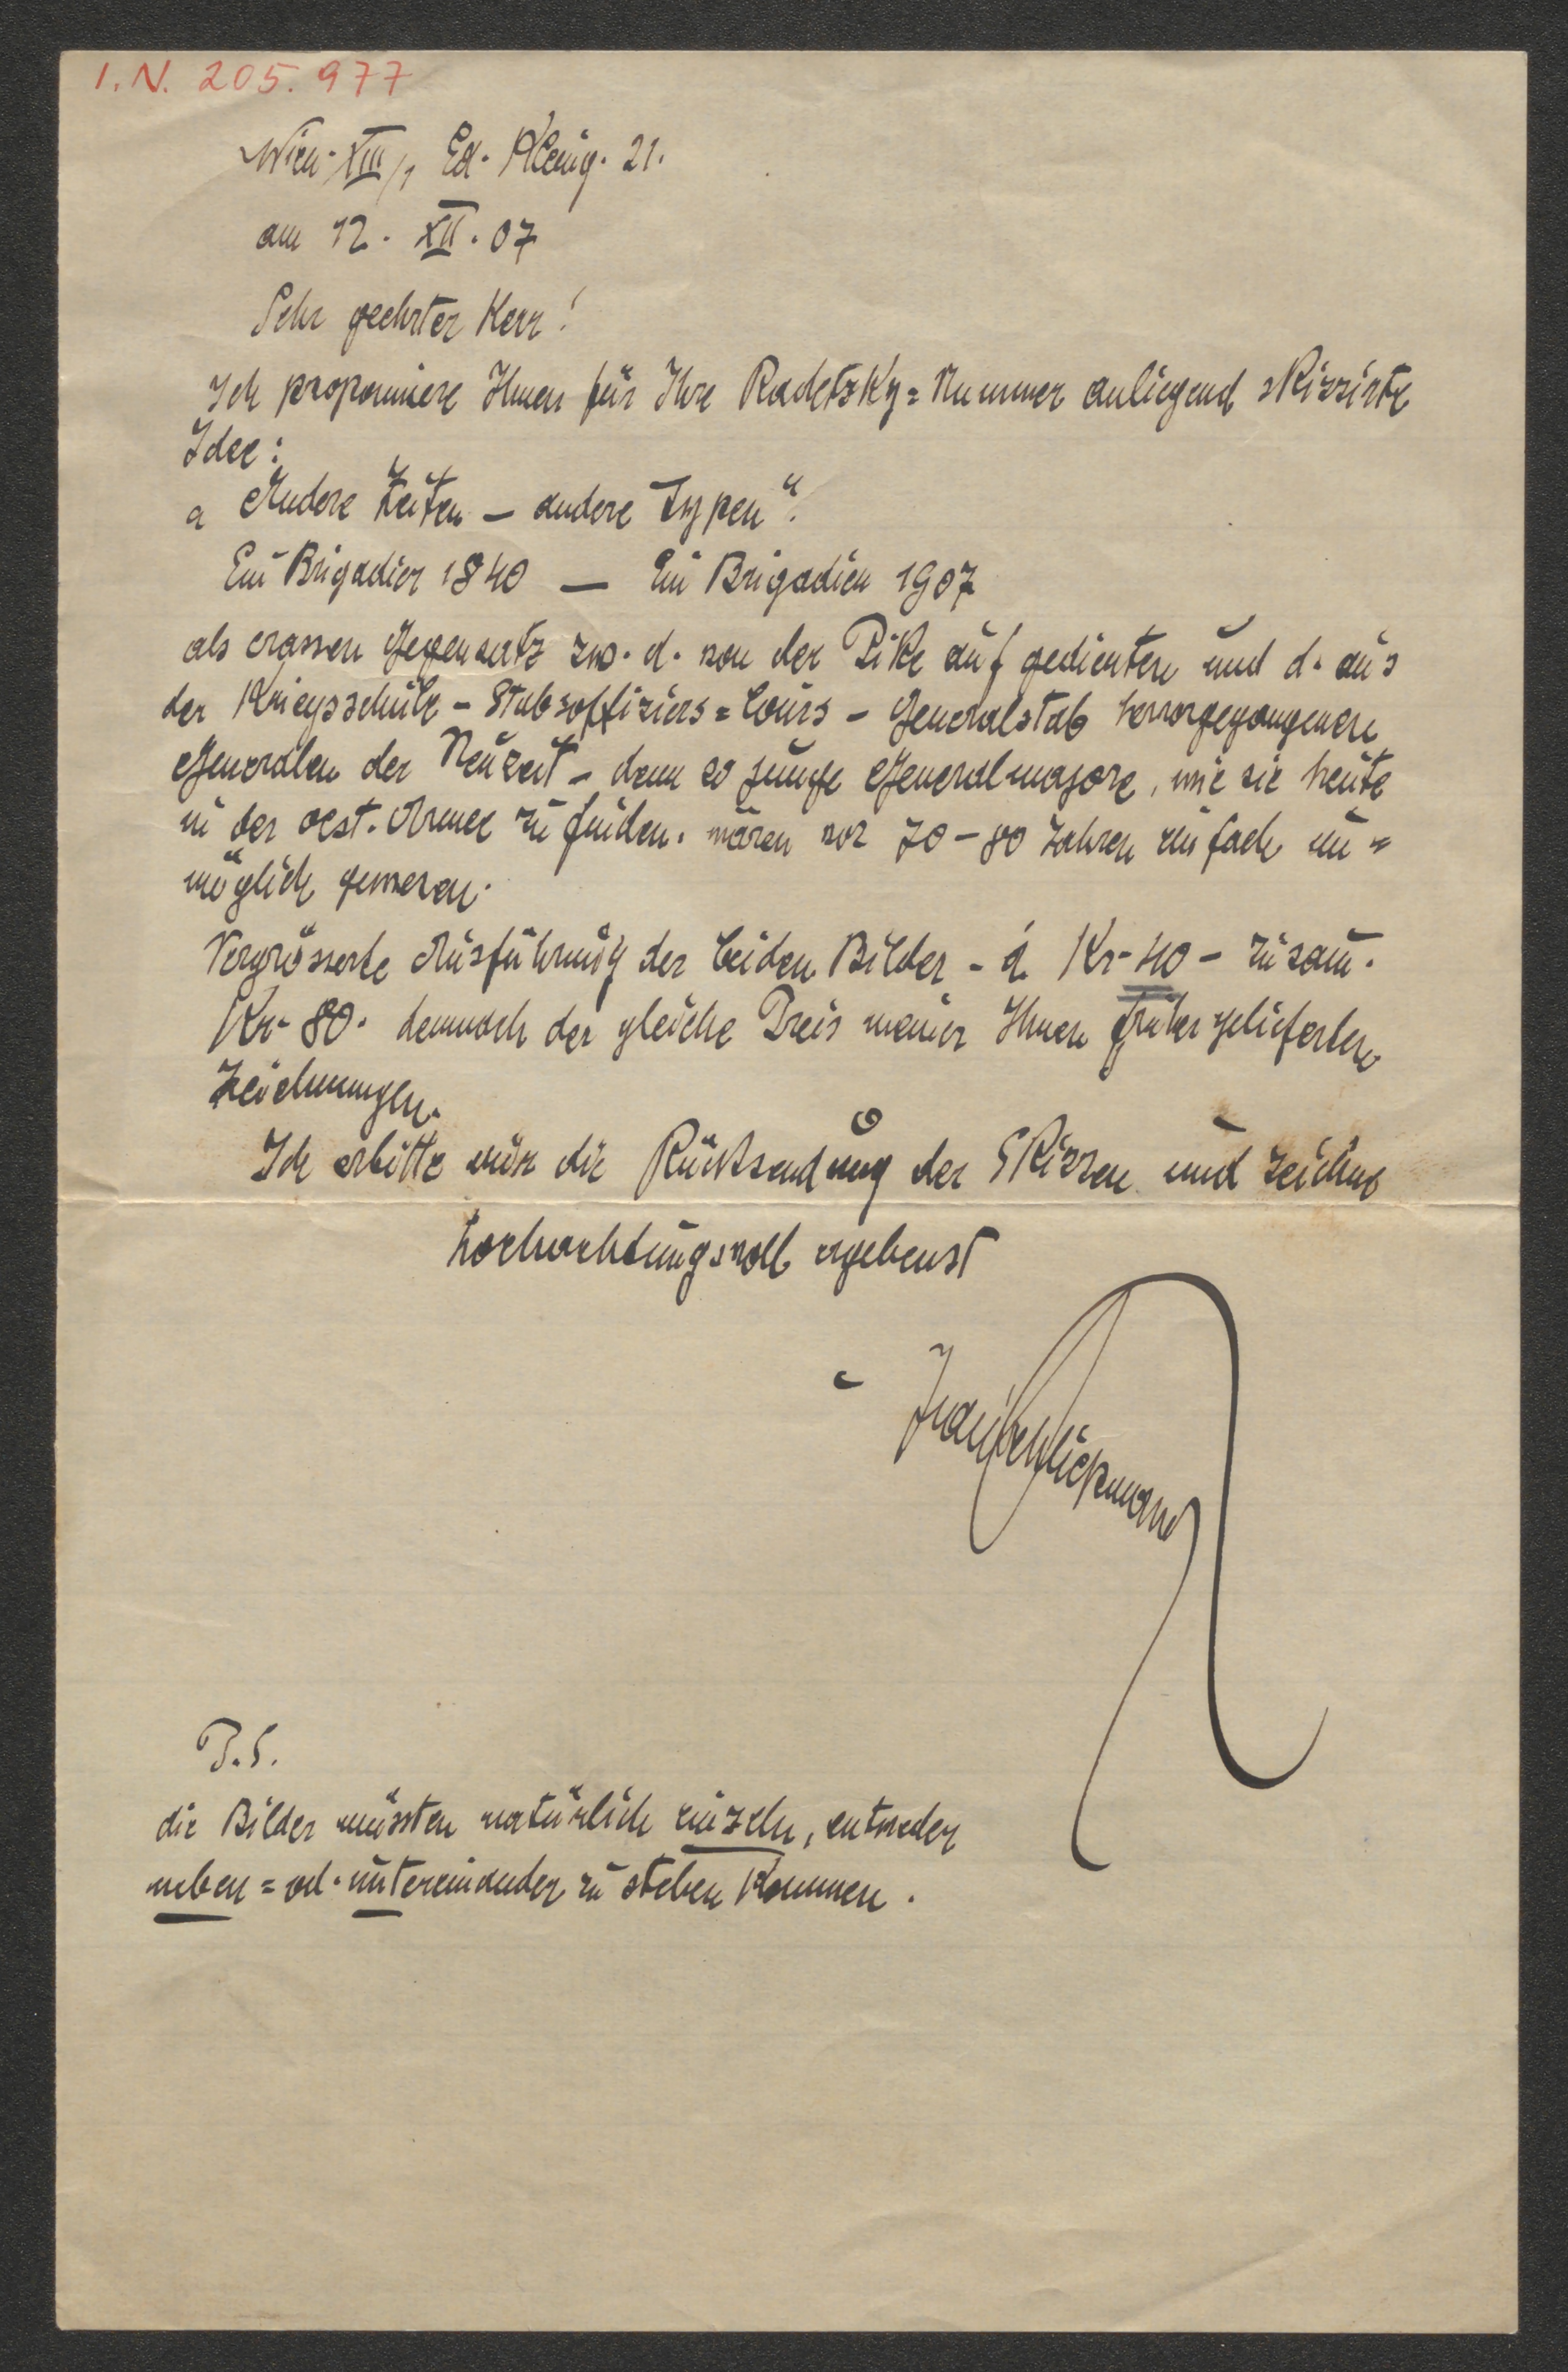 I.N. 205.977
Wien XIII/1 Ed. Kleing. 21.
am 12. XII. 07
Sehr geehrter Herr!
Ich proponiere Ihnen für Ihre Radetzky=Nummer anliegend skizzirte
Idee:
„Andere Zeiten – andere Typen“.
Ein Brigadier 1840 — Ein Brigadier 1907
als crassen Gegensatz zw. d. von der Pike auf gedienten und d. aus
der Kriegsschule – Stabsoffiziers=Cours – Generalstab hervorgegangenen
Generalen der Neuzeit – denn so junge Generalmajore, wie sie heute
in der oest. Armee zu finden. wären vor 70–80 Jahren einfach un=
möglich gewesen.
Vergrösserte Ausführung der beiden Bilder – à Kr– 40 – zusam.
Kr– 80. demnach der gleiche Preis meiner Ihnen früher gelieferten
Zeichnungen.
Ich erbitte nur die Rücksendung der Skizzen und zeichne
hochachtungsvoll ergebenst
Schließmann
P.S.
die Bilder müssten natürlich einzeln, entweder
neben= od. untereinander zu stehen kommen.